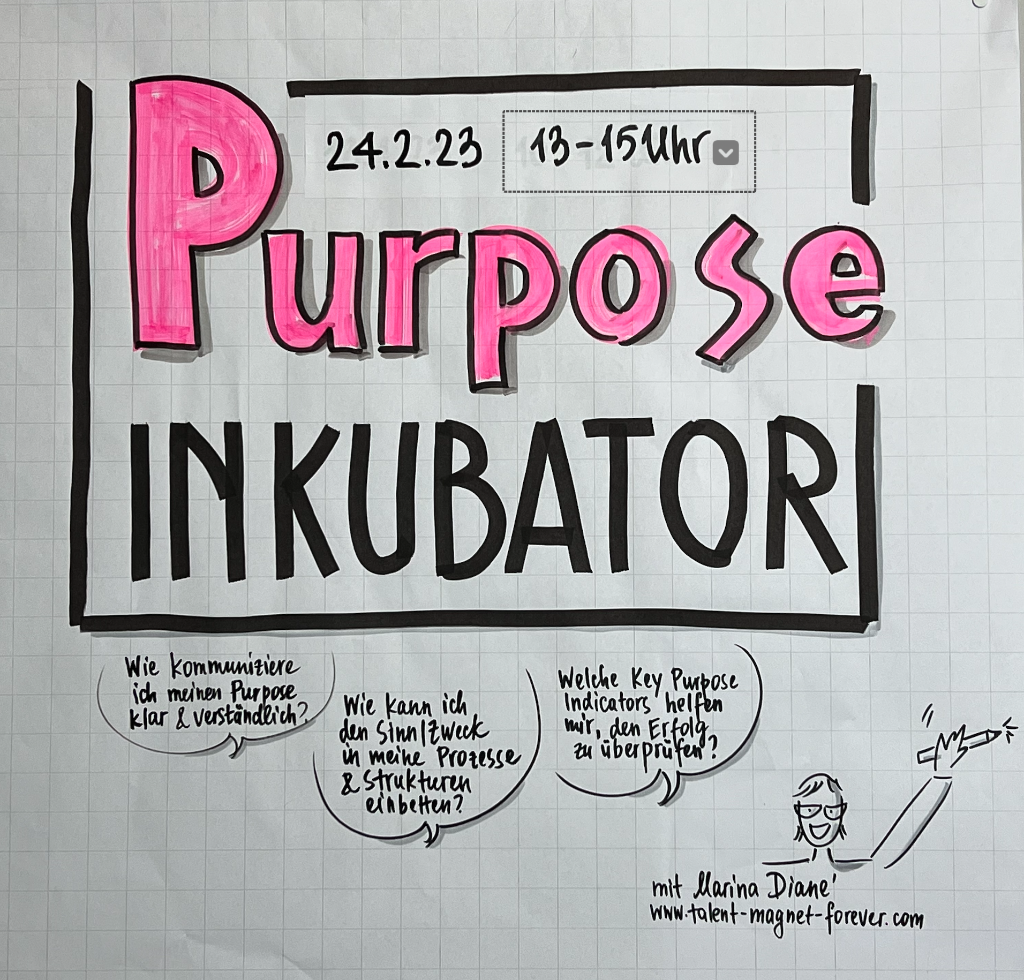 24.2.23 13-15 Uhr
Purpose
INKUBATOR
Wie kommuniziere
ich meinen Purpose
klar & verständlich?
Wie kann ich
den Sinn/Zweck
in meine Prozesse
& Strukturen
einbetten?
Welche Key Purpose
Indicators helfen
mir, den Erfolg
zu überprüfen?
mit Marina Diané
www.talent-magnet-forever.com